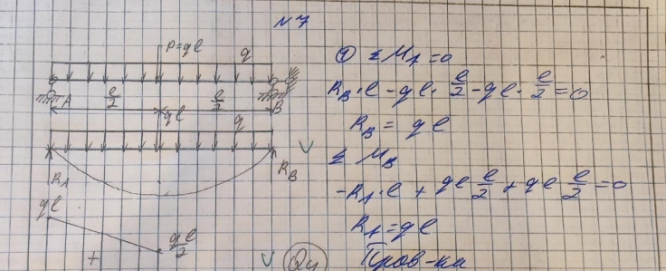 №7
P=qℓ
q
A
ℓ/2
ℓ/2
B
qℓ
q
R_A
R_B
qℓ
qℓ/2
+
Qy
① ΣM_A=0
R_B·ℓ-qℓ·ℓ/2-qℓ·ℓ/2=0
R_B = qℓ
ΣM_B
-R_A·ℓ+qℓ ℓ/2+qℓ ℓ/2=0
R_A=qℓ
Пров-ка